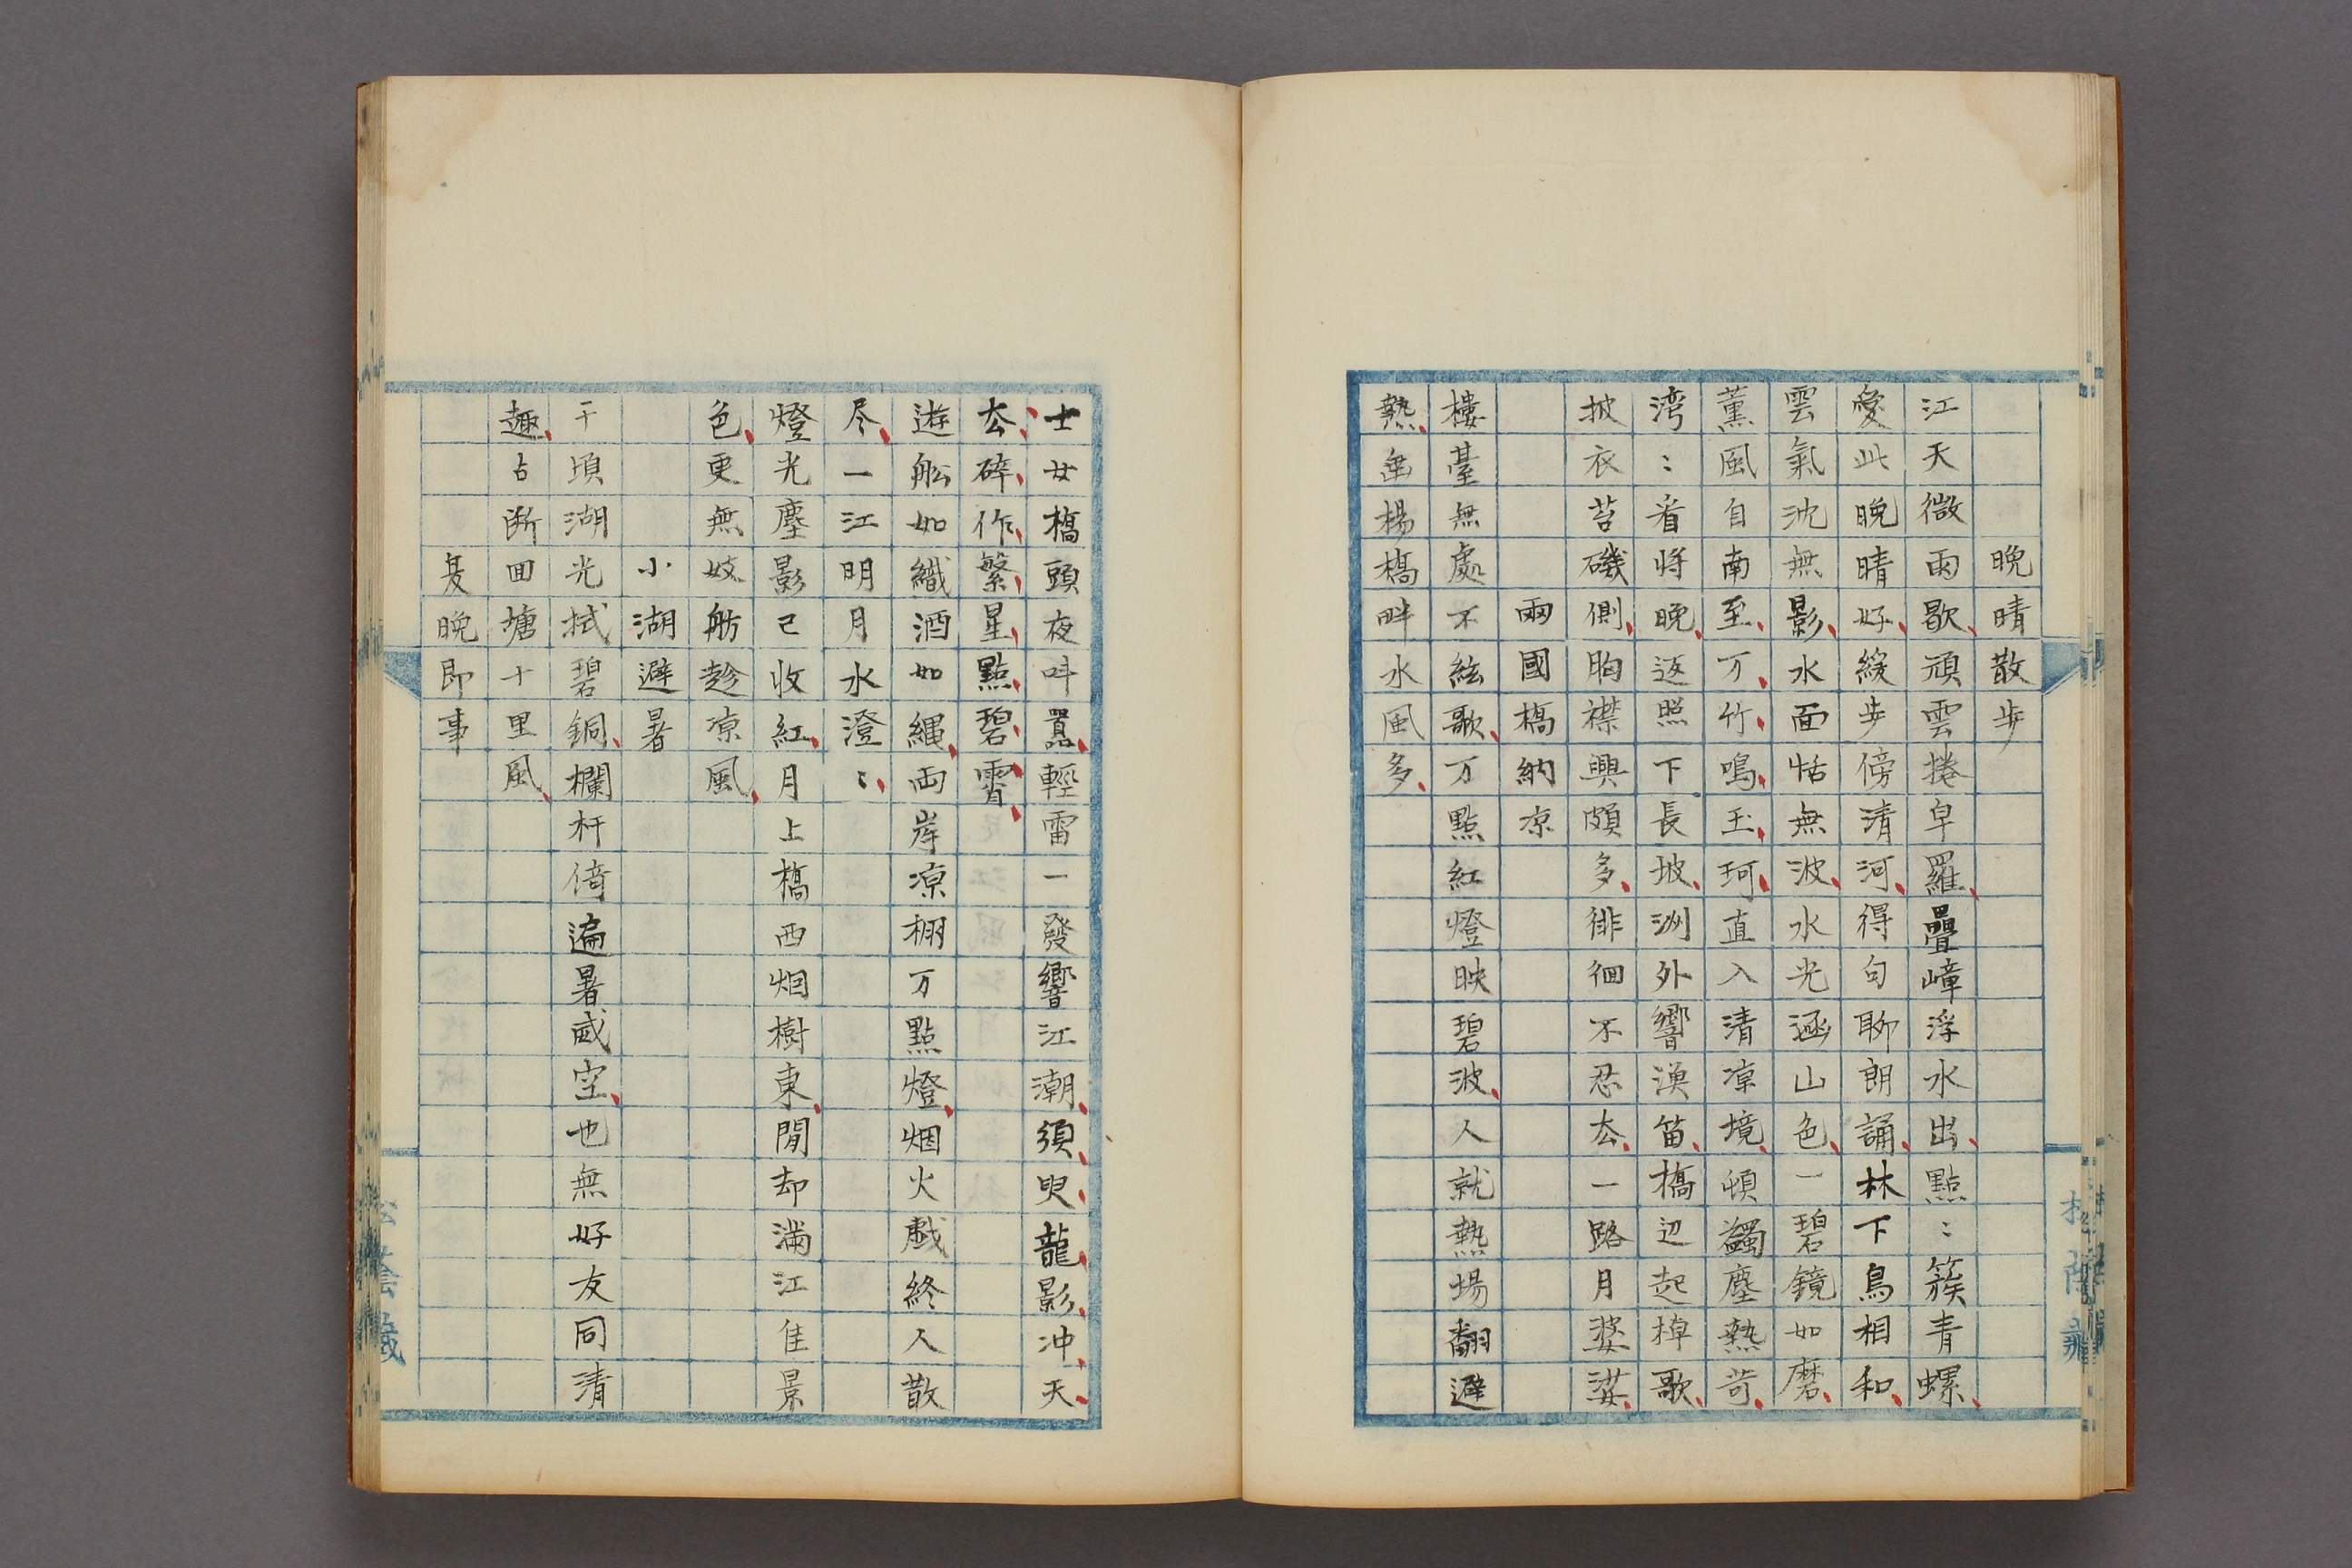 晩晴散歩
江天微雨歇頑雲捲皁羅疊嶂浮水出點〻簇青螺
愛此晩晴好緩歩傍清河得句聊朗誦林下鳥相和
雲氣沈無影水面恬無波水光涵山色一碧鏡如磨
薫風自南至万竹鳴玉珂直入清凉境頓蠲塵熱苛
湾〻看将晩返照下長坡洲外響漁笛橋辺起棹歌
披衣苔磯側胸襟興頗多徘徊不忍去一路月婆娑
兩國橋納凉
樓䑓無處不絃歌万點紅燈映碧波人就熱場翻避
熱垂楊橋畔水風多
士女橋頭夜呌囂輕雷一發響江潮須臾龍影冲天
去碎作繁星點碧霄
遊舩如織酒如縄両岸凉棚万點燈烟火戯終人散
尽一江明月水澄〻
燈光塵影已收紅月上橋西烟樹東閒却滿江佳景
色更無妓舫趁凉風
小湖避暑
千頃湖光拭碧銅欄杆倚遍暑威空也無好友同清
趣占断回塘十里風
夏晩即事
松蔭藏